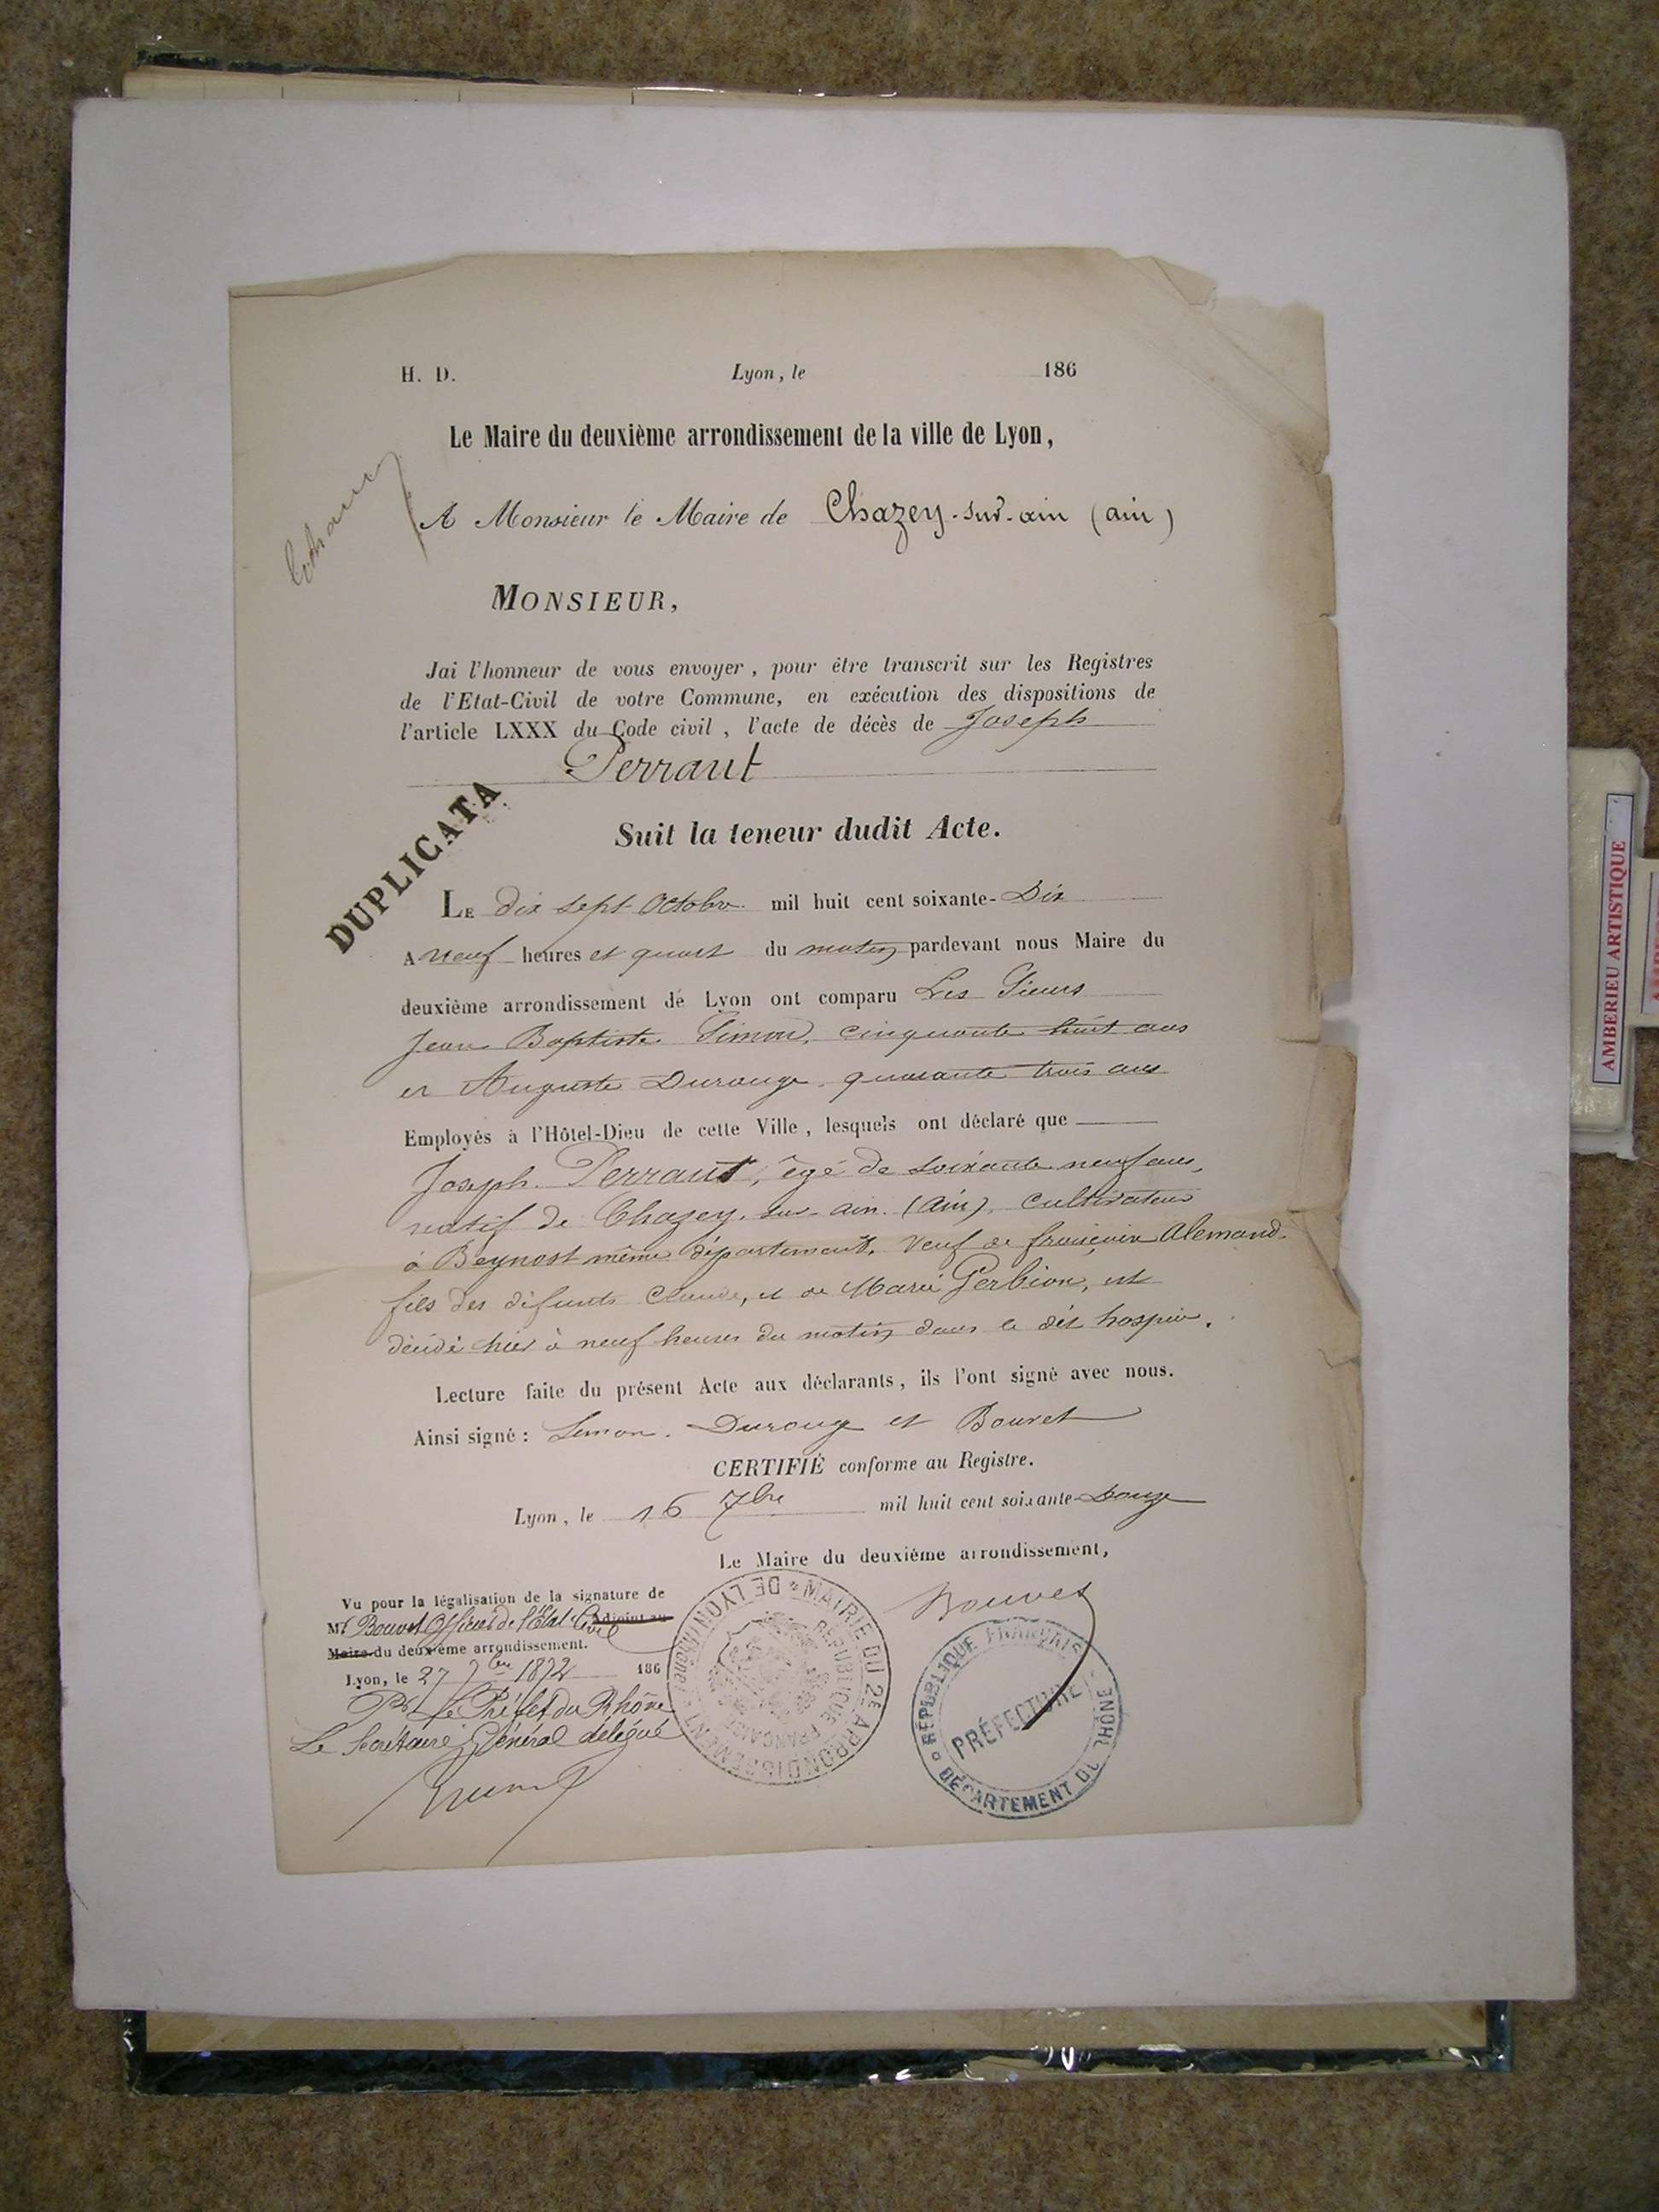 H. D. Lyon, le 186
Le Maire du deuxième arrondissement de la ville de Lyon,
A Monsieur le Maire de Chazey-sur-ain (ain)
MONSIEUR,
Jai l'honneur de vous envoyer, pour être transcrit sur les Registres
de l'Etat-Civil de votre Commune, en exécution des dispositions de
l'article LXXX du Code civil, l'acte de décès de Joseph
Perraut
DUPLICATA
Suit la teneur dudit Acte.
LE dix sept Octobre mil huit cent soixante-Dix
A neuf heures et quart du matin pardevant nous Maire du
deuxième arrondissement de Lyon ont comparu Les Sieurs
Jean Baptiste Simon, cinquante huit ans
et Auguste Durouge, quarante trois ans
Employés à l'Hôtel-Dieu de cette Ville, lesquels ont déclaré que
Joseph Perraut, âgé de soixante neuf ans,
natif de Chazey-sur-ain (Ain), cultivateur
à Beynost même département, veuf de françoise Alemand
fils des défunts Claude, et de Marie Gerbion, est
décédé hier à neuf heures du matin dans le dit hospice.
Lecture faite du présent Acte aux déclarants, ils l'ont signé avec nous.
Ainsi signé: Simon. Durouge et Bouvet
CERTIFIÉ conforme au Registre.
Lyon, le 16 7bre mil huit cent soixante-Douze
Le Maire du deuxième arrondissement,
Bouvet
Vu pour la légalisation de la signature de
Mr Bouvet Officier de l'État Civil Adjoint au
Maire du deuxième arrondissement.
Lyon, le 27 7bre 1872 186
Pr Le Préfet du Rhône
Le Secrétaire Général délégué
MAIRIE DU 2E ARRONDISSEMENT DE LYON (Rhône)
RÉPUBLIQUE FRANÇAISE
RÉPUBLIQUE FRANÇAISE
PRÉFECTURE
DÉPARTEMENT DU RHÔNE
AMBERIEU ARTISTIQUE